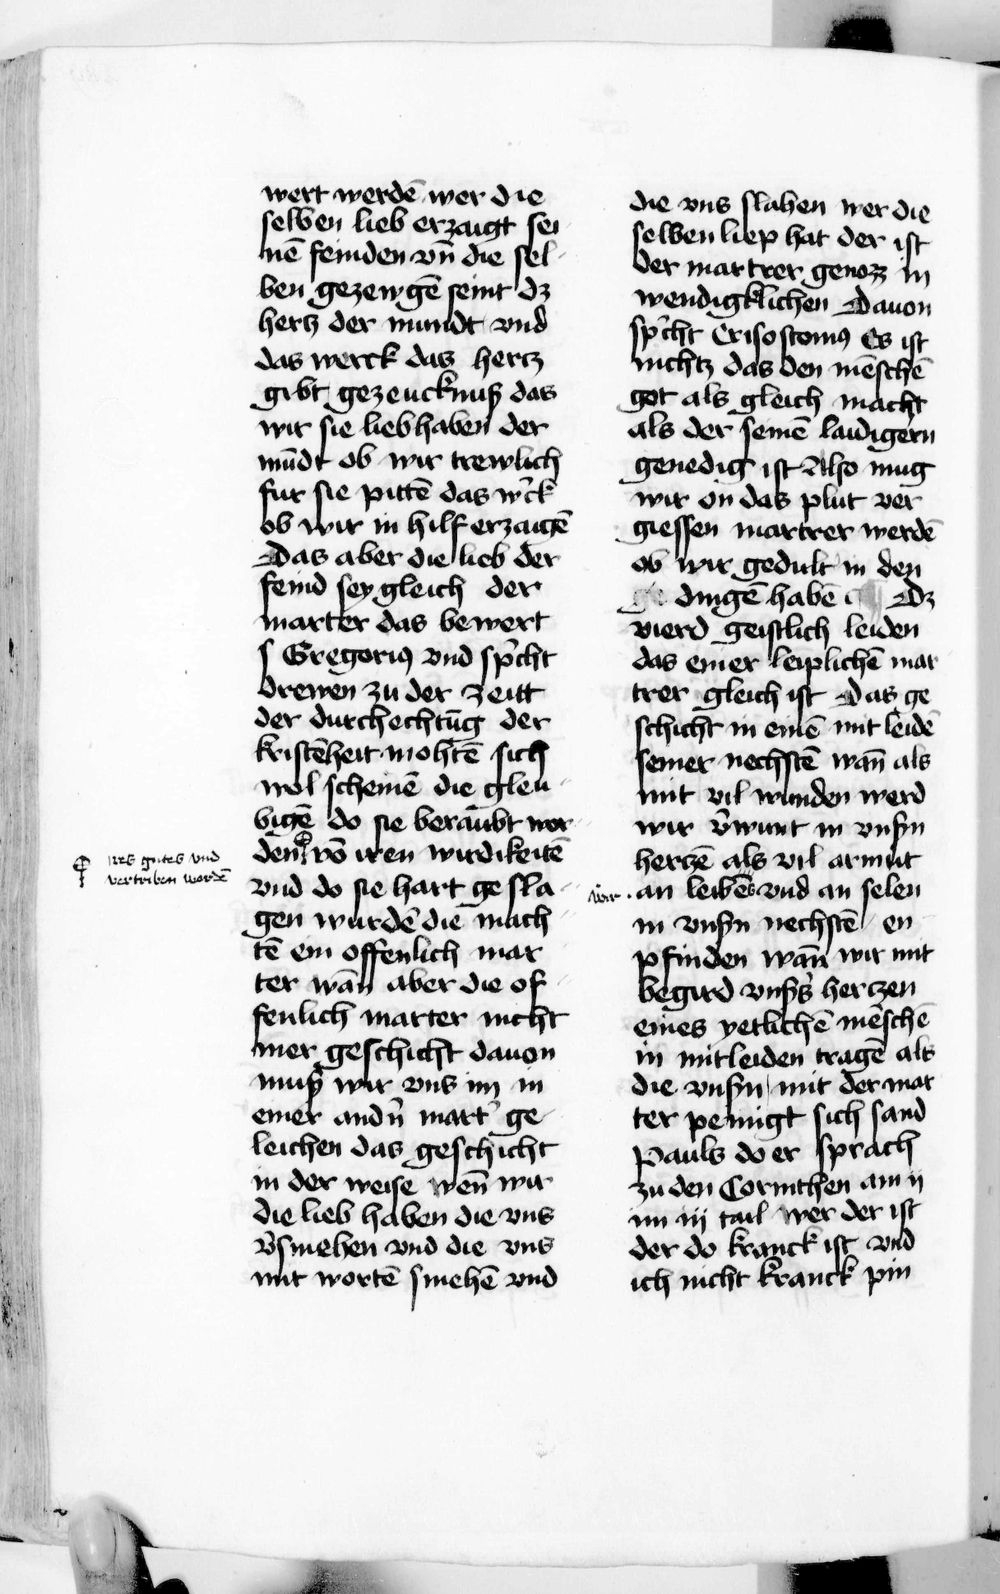 wert werdē wer die
selben lieb erzaigt sei
nē feinden vn̄ die sel-
ben gezewgē seint dz
hertz der mundt vnd
das werck das hertz
gibt gezeucknuß das
wir sie liebhaben der
mūdt ob wir trewlich
fur sie pittē das w̉ck
ob wir in hilf erzaigē
Das aber die lieb der
feind sey gleich der
marter das bewert
s Gregoriꝰ vnd sp̉cht
drewen zu der zeitt
der durchechtūg der
kristēheit mohtē sich
wol scheinē die gleu-
bigē do sie beraubt wor-
den vō iren wirdikeitē
vnd do sie hart gesla-
gen wurdē die mach-
tē ein offenlich mar
ter wān aber die of-
fenlich marter nicht
mer geschicht dauon
muß wir vns im in
einer and̉n mart̉ ge-
leichen das geschicht
in der weise wen̄ wir
die lieb haben die vns
v̉smehen vnd die vns
mit wortē smehē vnd
ires gutes vnd
vertriben wordē
die vns slahen wer die
selben liep hat der ist
der martrer genozz in
wendigklichen Dauon
sp̉cht Crisostomꝰ Es ist
nichtz das den mēschē
got als gleich macht
als der seinē laidigern
genedig ist Also mug
wir on das plut ver
giessen martrer werdē
ob wir gedult in den
dingē habē Dz
vierd geistlich leiden
das einer leiplichē mar
trer gleich ist Das ge
schicht in einē mit leidē
seiner nechstē wan̄ als
mit vil wunden werd
wir v̉wunt in vnßn
hertzē als vil armut
wir
an leibēs vnd an selen
in vnßn nechstē en
pfinden wan̄ wir mit
begird vnßs̉ hertzen
eines yetlichē mēschē
in mitleiden tragē als
die vnßn mit der mar
ter peinigt sich sand
Pauls do er sprach
zu den Corinthen am ij
im iij tail wer der ist
der do kranck ist vnd
ich nicht kranck pin